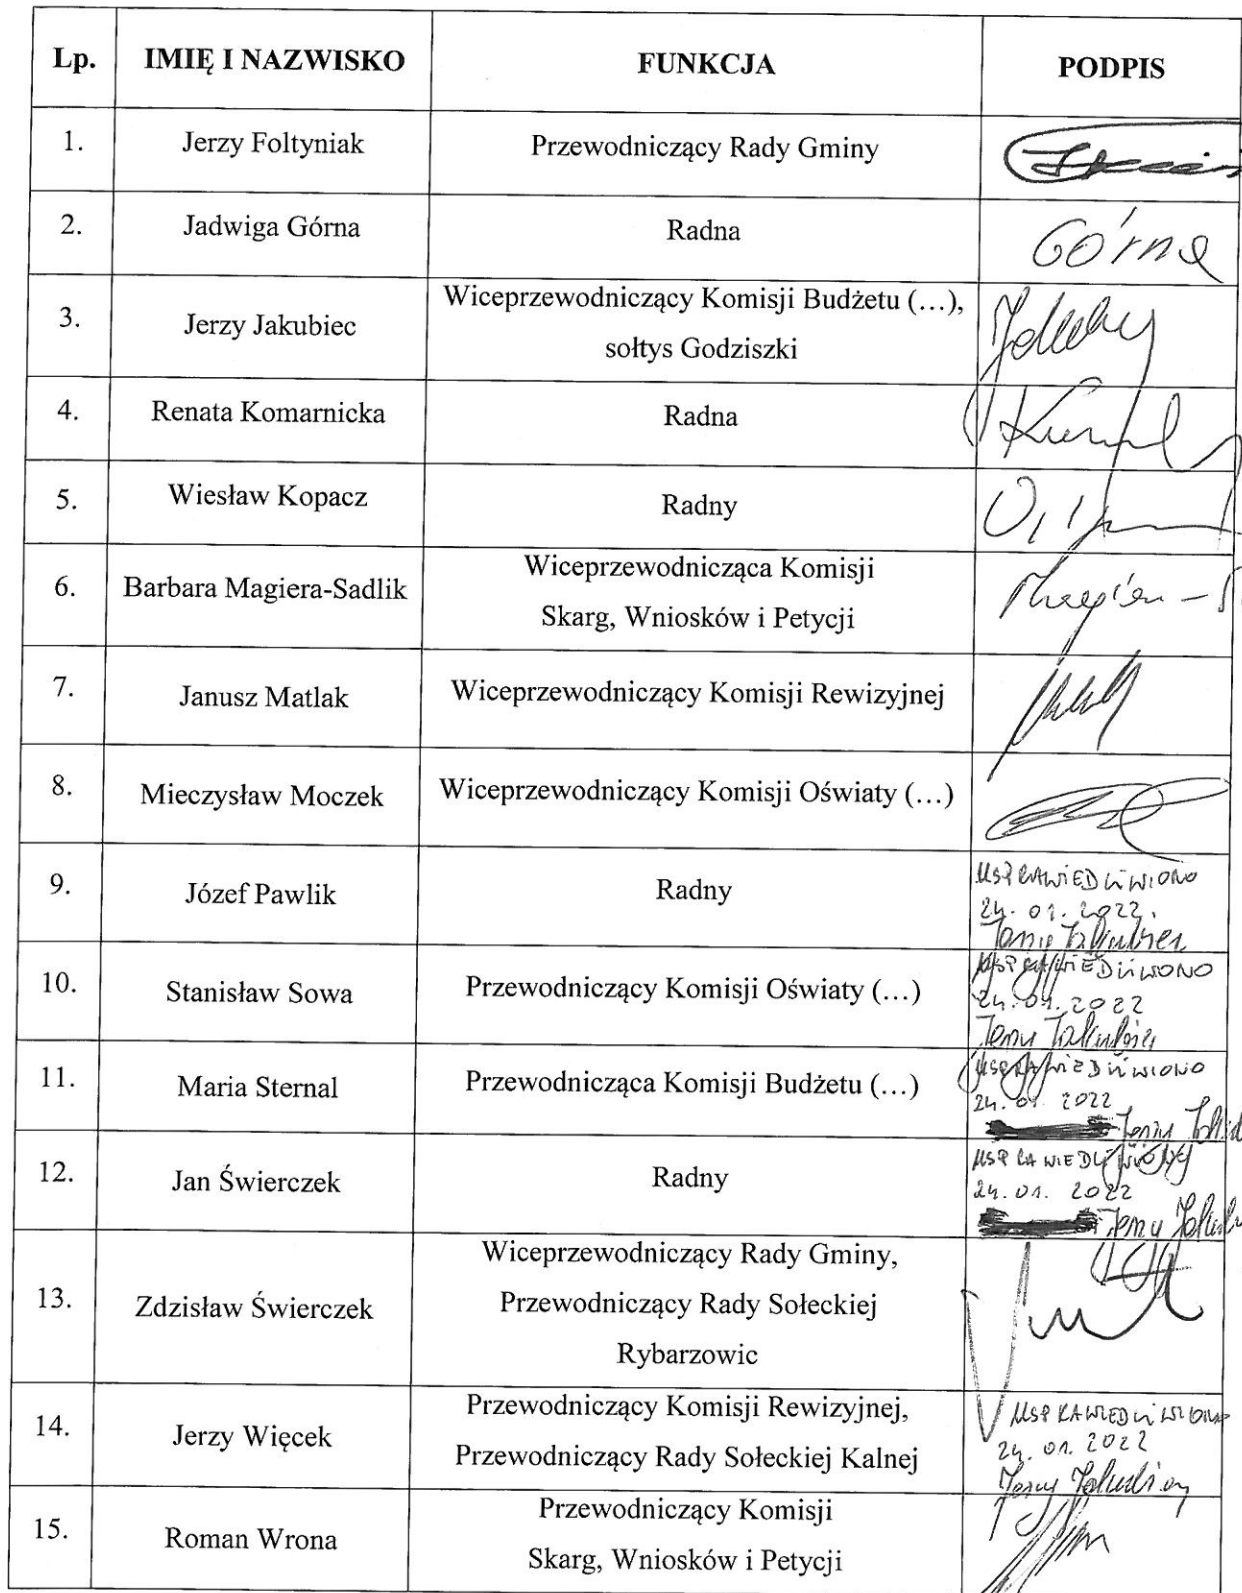 Lp. IMIĘ I NAZWISKO FUNKCJA PODPIS
1. Jerzy Foltyniak Przewodniczący Rady Gminy
2. Jadwiga Górna Radna Górna
3. Jerzy Jakubiec Wiceprzewodniczący Komisji Budżetu (…),
sołtys Godziszki
4. Renata Komarnicka Radna
5. Wiesław Kopacz Radny
6. Barbara Magiera-Sadlik Wiceprzewodnicząca Komisji
Skarg, Wniosków i Petycji
7. Janusz Matlak Wiceprzewodniczący Komisji Rewizyjnej
8. Mieczysław Moczek Wiceprzewodniczący Komisji Oświaty (…)
9. Józef Pawlik Radny USPRAWIEDLIWIONO
24.01.2022.
Jerzy Jakubiec
10. Stanisław Sowa Przewodniczący Komisji Oświaty (…) USPRAWIEDLIWIONO
24.01.2022
Jerzy Jakubiec
11. Maria Sternal Przewodnicząca Komisji Budżetu (…) USPRAWIEDLIWIONO
24.01.2022
Jerzy
12. Jan Świerczek Radny USPRAWIEDLIWIONO
24.01.2022
Jerzy
13. Zdzisław Świerczek Wiceprzewodniczący Rady Gminy,
Przewodniczący Rady Sołeckiej
Rybarzowic
14. Jerzy Więcek Przewodniczący Komisji Rewizyjnej,
Przewodniczący Rady Sołeckiej Kalnej USPRAWIEDLIWIONO
24.01.2022
Jerzy Jakubiec
15. Roman Wrona Przewodniczący Komisji
Skarg, Wniosków i Petycji